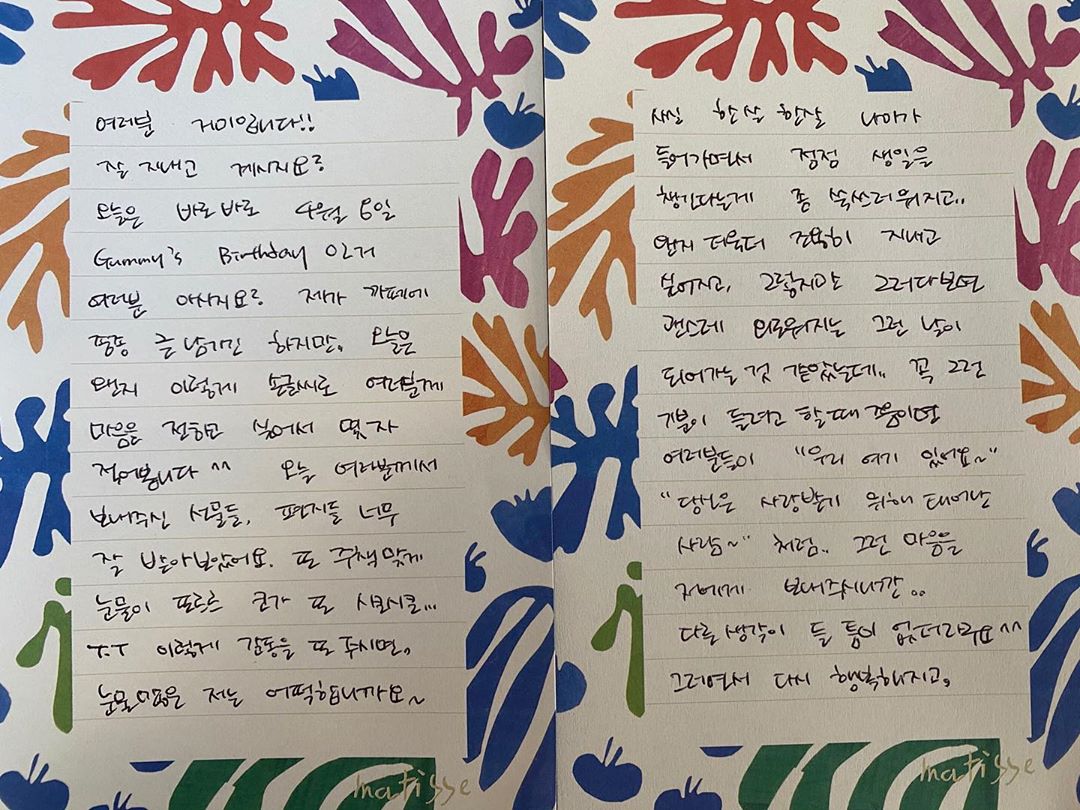 여러분 거미입니다!!
잘 지내고 계시지요?
오늘은 바로바로 4월 8일
Gummy's Birthday 이고
여러분 아시지요? 제가 카페에
종종 글 남기긴 하지만, 오늘은
왠지 이렇게 손글씨로 여러분께
마음을 전하고 싶어서 몇자
적어봅니다 ^^ 오늘 여러분께서
보내주신 선물들, 편지들 너무
잘 받아보았어요. 또 주책맞게
눈물이 또르르 코가 또 시큰시큰...
T.T 이렇게 감동을 또 주시면,
눈물 많은 저는 어떡합니까요~
matisse
사실 한살 한살 나이가
들어가면서 점점 생일을
챙긴다는게 좀 쑥쓰러워지고..
왠지 더욱더 조용히 지내고
싶어지고, 그렇지만 그러다보면
괜스레 외로워지는 그런 날이
되어가는 것 같았는데.. 꼭 그런
기분이 들려고 할 때 쯤이면
여러분들이 "우리 여기 있어요~"
"당신은 사랑받기 위해 태어난
사람~" 처럼.. 그런 마음을
저에게 보내주시니깐..
다른 생각이 들 틈이 없더라구요 ^^
그러면서 다시 행복해지고,
matisse